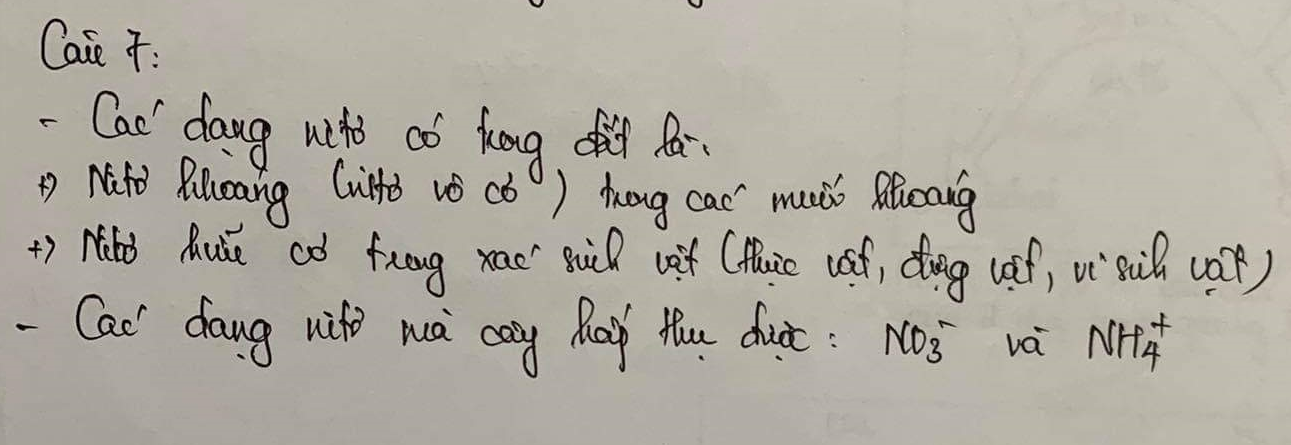 Câu 7:
- Các dạng nitơ có trong đất là:
+) Nitơ khoáng (nitơ vô cơ) trong các muối khoáng
+) Nitơ hữu cơ trong xác sinh vật (thực vật, động vật, vi sinh vật)
- Các dạng nitơ mà cây hấp thụ được: NO₃⁻ và NH₄⁺